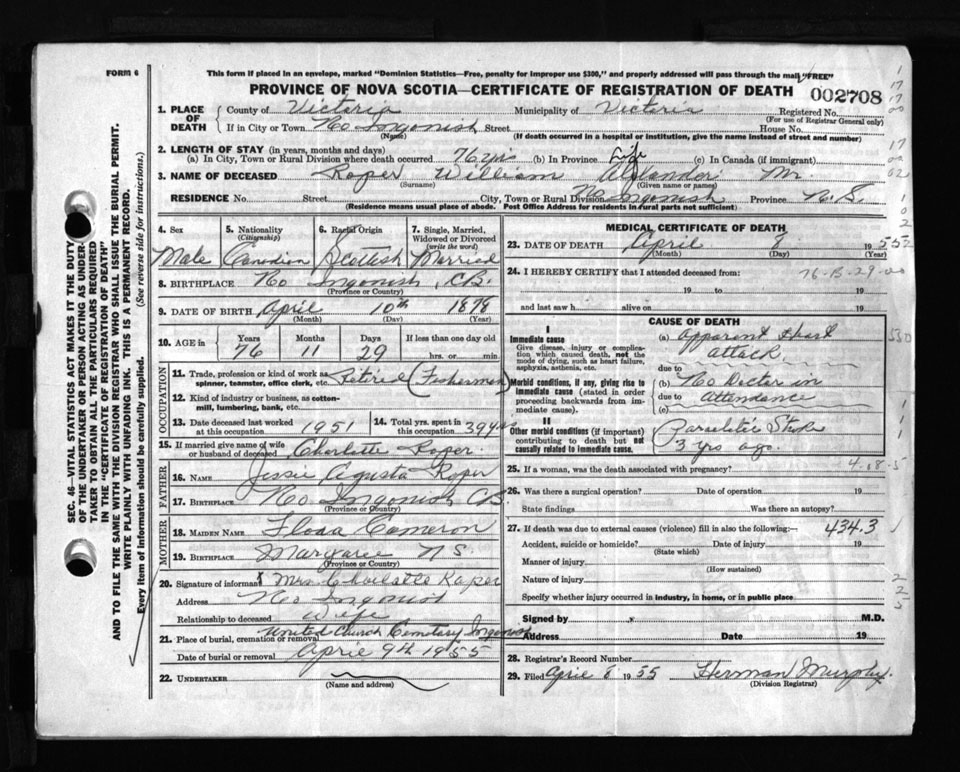 FORM 6
This form if placed in an envelope, marked "Dominion Statistics—Free, penalty for improper use $300," and properly addressed will pass through the mail "FREE"
PROVINCE OF NOVA SCOTIA—CERTIFICATE OF REGISTRATION OF DEATH
002708
SEC. 46—VITAL STATISTICS ACT MAKES IT THE DUTY OF THE UNDERTAKER OR PERSON ACTING AS UNDERTAKER TO OBTAIN ALL THE PARTICULARS REQUIRED IN THE "CERTIFICATE OF REGISTRATION OF DEATH" AND TO FILE THE SAME WITH THE DIVISION REGISTRAR WHO SHALL ISSUE THE BURIAL PERMIT.
WRITE PLAINLY WITH UNFADING INK. THIS IS A PERMANENT RECORD.
Every item of information should be carefully supplied. (See reverse side for instructions.)
1. PLACE OF DEATH County of Victoria Municipality of Victoria Registered No.
(For use of Registrar General only)
If in City or Town No Ingonish Street House No.
(Name) (If death occurred in a hospital or institution, give the name instead of street and number)
2. LENGTH OF STAY (in years, months and days)
(a) In City, Town or Rural Division where death occurred 76 yrs (b) In Province Life (c) In Canada (if immigrant)
3. NAME OF DECEASED Roper William Alexander Mr.
(Surname) (Given name or names)
RESIDENCE No. Street City, Town or Rural Division No Ingonish Province N.S.
(Residence means usual place of abode. Post Office Address for residents in rural parts not sufficient)
4. Sex 5. Nationality (Citizenship) 6. Racial Origin 7. Single, Married, Widowed or Divorced (write the word)
Male Canadian Scottish Married
8. BIRTHPLACE No Ingonish, C.B.
(Province or Country)
9. DATE OF BIRTH April 10th 1878
(Month) (Day) (Year)
10. AGE in Years Months Days If less than one day old
76 11 29 hrs. or min.
OCCUPATION
11. Trade, profession or kind of work as spinner, teamster, office clerk, etc. Retired (Fisherman)
12. Kind of industry or business, as cotton-mill, lumbering, bank, etc.
13. Date deceased last worked at this occupation 1951 14. Total yrs. spent in this occupation 39 yrs
15. If married give name of wife or husband of deceased Charlotte Roper.
FATHER
16. NAME Jessie Agusta Roper
17. BIRTHPLACE No Ingonish C.B.
(Province or Country)
MOTHER
18. MAIDEN NAME Flora Cameron
19. BIRTHPLACE Margaree N S.
(Province or Country)
20. Signature of informant X Mrs. Charlotte Roper
Address No Ingonish
Relationship to deceased Wife
21. Place of burial, cremation or removal United Church Cemetary Ingonish
Date of burial or removal April 9th 1955
22. UNDERTAKER
(Name and address)
MEDICAL CERTIFICATE OF DEATH
23. DATE OF DEATH April 8 1955
(Month) (Day) (Year)
24. I HEREBY CERTIFY that I attended deceased from:
19 to 19
and last saw h alive on 19
CAUSE OF DEATH
I
Immediate cause
Give disease, injury or complication which caused death, not the mode of dying, such as heart failure, asphyxia, asthenia, etc.
(a) Apparent Heart attack.
due to
Morbid conditions, if any, giving rise to immediate cause (stated in order proceeding backwards from immediate cause).
(b) No Doctor in
due to attendance
(c)
II
Other morbid conditions (if important) contributing to death but not causally related to immediate cause.
Paraletic Stroke
3 yrs ago.
25. If a woman, was the death associated with pregnancy?
26. Was there a surgical operation? Date of operation 19
State findings Was there an autopsy?
27. If death was due to external causes (violence) fill in also the following:— 434.3
Accident, suicide or homicide? Date of injury 19
(State which)
Manner of injury
(How sustained)
Nature of injury
Specify whether injury occurred in industry, in home, or in public place
Signed by M.D.
Address Date 19
28. Registrar's Record Number
29. Filed April 8 1955 Herman Murphy.
(Division Registrar)